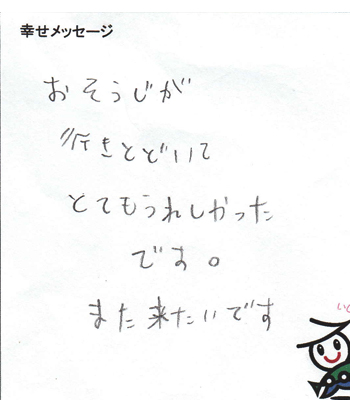 幸せメッセージ
おそうじが
行きとどいて
とてもうれしかった
です。
また来たいです